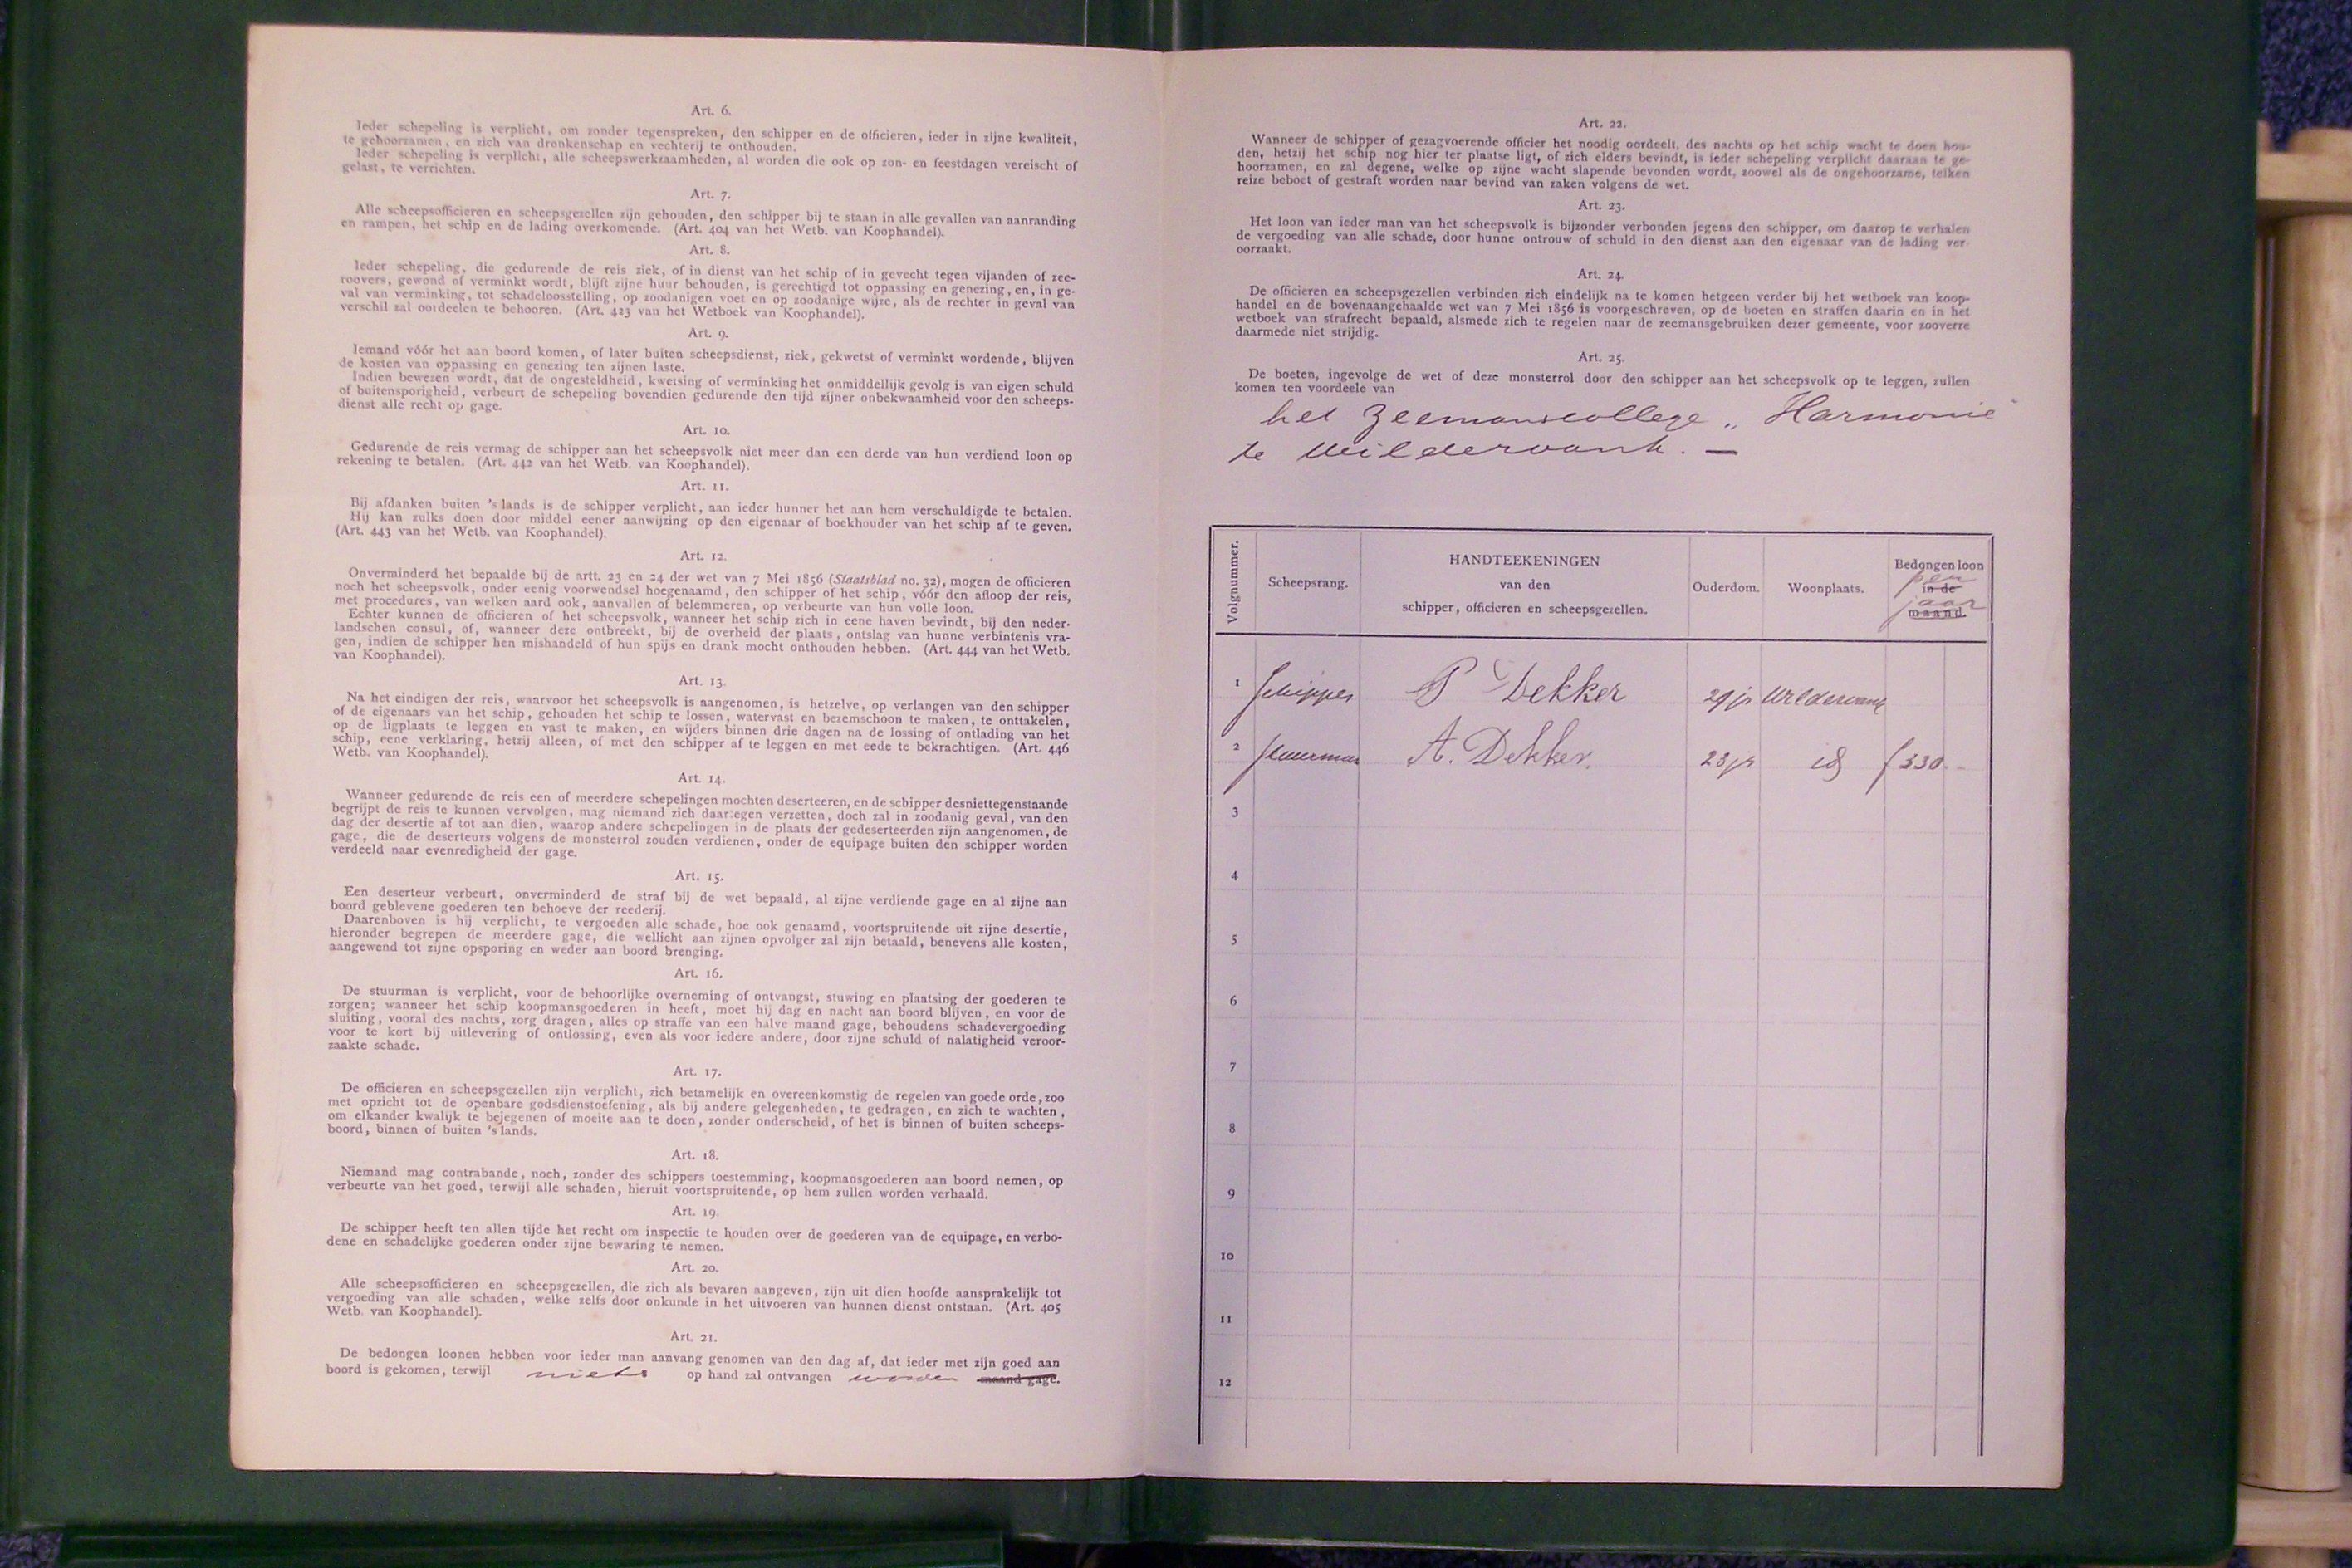 Art. 6.
Ieder schepeling is verplicht, om zonder tegenspreken, den schipper en de officieren, ieder in zijne kwaliteit,
te gehoorzamen, en zich van dronkenschap en vechterij te onthouden.
Ieder schepeling is verplicht, alle scheepswerkzaamheden, al worden die ook op zon- en feestdagen vereischt of
gelast, te verrichten.
Art. 7.
Alle scheepsofficieren en scheepsgezellen zijn gehouden, den schipper bij te staan in alle gevallen van aanranding
en rampen, het schip en de lading overkomende. (Art. 404 van het Wetb. van Koophandel).
Art. 8.
Ieder schepeling, die gedurende de reis ziek, of in dienst van het schip of in gevecht tegen vijanden of zee-
roovers, gewond of verminkt wordt, blijft zijne huur behouden, is gerechtigd tot oppassing en genezing, en, in ge-
val van verminking, tot schadeloosstelling, op zoodanigen voet en op zoodanige wijze, als de rechter in geval van
verschil zal oordeelen te behooren. (Art. 423 van het Wetboek van Koophandel).
Art. 9.
Iemand vóór het aan boord komen, of later buiten scheepsdienst, ziek, gekwetst of verminkt wordende, blijven
de kosten van oppassing en genezing ten zijnen laste.
Indien bewezen wordt, dat de ongesteldheid, kwetsing of verminking het onmiddellijk gevolg is van eigen schuld
of buitensporigheid, verbeurt de schepeling bovendien gedurende den tijd zijner onbekwaamheid voor den scheeps-
dienst alle recht op gage.
Art. 10.
Gedurende de reis vermag de schipper aan het scheepsvolk niet meer dan een derde van hun verdiend loon op
rekening te betalen. (Art. 442 van het Wetb. van Koophandel).
Art. 11.
Bij afdanken buiten 's lands is de schipper verplicht, aan ieder hunner het aan hem verschuldigde te betalen.
Hij kan zulks doen door middel eener aanwijzing op den eigenaar of boekhouder van het schip af te geven.
(Art. 443 van het Wetb. van Koophandel).
Art. 12.
Onverminderd het bepaalde bij de artt. 23 en 24 der wet van 7 Mei 1856 (Staatsblad no. 32), mogen de officieren
noch het scheepsvolk, onder eenig voorwendsel hoegenaamd, den schipper of het schip, vóór den afloop der reis,
met procedures, van welken aard ook, aanvallen of belemmeren, op verbeurte van hun volle loon.
Echter kunnen de officieren of het scheepsvolk, wanneer het schip zich in eene haven bevindt, bij den neder-
landschen consul, of, wanneer deze ontbreekt, bij de overheid der plaats, ontslag van hunne verbintenis vra-
gen, indien de schipper hen mishandeld of hun spijs en drank mocht onthouden hebben. (Art. 444 van het Wetb.
van Koophandel).
Art. 13.
Na het eindigen der reis, waarvoor het scheepsvolk is aangenomen, is hetzelve, op verlangen van den schipper
of de eigenaars van het schip, gehouden het schip te lossen, watervast en bezemschoon te maken, te onttakelen,
op de ligplaats te leggen en vast te maken, en wijders binnen drie dagen na de lossing of ontlading van het
schip, eene verklaring, hetzij alleen, of met den schipper af te leggen en met eede te bekrachtigen. (Art. 446
Wetb. van Koophandel).
Art. 14.
Wanneer gedurende de reis een of meerdere schepelingen mochten deserteeren, en de schipper desniettegenstaande
begrijpt de reis te kunnen vervolgen, mag niemand zich daartegen verzetten, doch zal in zoodanig geval, van den
dag der desertie af tot aan dien, waarop andere schepelingen in de plaats der gedeserteerden zijn aangenomen, de
gage, die de deserteurs volgens de monsterrol zouden verdienen, onder de equipage buiten den schipper worden
verdeeld naar evenredigheid der gage.
Art. 15.
Een deserteur verbeurt, onverminderd de straf bij de wet bepaald, al zijne verdiende gage en al zijne aan
boord geblevene goederen ten behoeve der reederij.
Daarenboven is hij verplicht, te vergoeden alle schade, hoe ook genaamd, voortspruitende uit zijne desertie,
hieronder begrepen de meerdere gage, die wellicht aan zijnen opvolger zal zijn betaald, benevens alle kosten,
aangewend tot zijne opsporing en weder aan boord brenging.
Art. 16.
De stuurman is verplicht, voor de behoorlijke overneming of ontvangst, stuwing en plaatsing der goederen te
zorgen; wanneer het schip koopmansgoederen in heeft, moet hij dag en nacht aan boord blijven, en voor de
sluiting, vooral des nachts, zorg dragen, alles op straffe van een halve maand gage, behoudens schadevergoeding
voor te kort bij uitlevering of ontlossing, even als voor iedere andere, door zijne schuld of nalatigheid veroor-
zaakte schade.
Art. 17.
De officieren en scheepsgezellen zijn verplicht, zich betamelijk en overeenkomstig de regelen van goede orde, zoo
met opzicht tot de openbare godsdienstoefening, als bij andere gelegenheden, te gedragen, en zich te wachten,
om elkander kwalijk te bejegenen of moeite aan te doen, zonder onderscheid, of het is binnen of buiten scheeps-
boord, binnen of buiten 's lands.
Art. 18.
Niemand mag contrabande, noch, zonder des schippers toestemming, koopmansgoederen aan boord nemen, op
verbeurte van het goed, terwijl alle schaden, hieruit voortspruitende, op hem zullen worden verhaald.
Art. 19.
De schipper heeft ten allen tijde het recht om inspectie te houden over de goederen van de equipage, en verbo-
dene en schadelijke goederen onder zijne bewaring te nemen.
Art. 20.
Alle scheepsofficieren en scheepsgezellen, die zich als bevaren aangeven, zijn uit dien hoofde aansprakelijk tot
vergoeding van alle schaden, welke zelfs door onkunde in het uitvoeren van hunnen dienst ontstaan. (Art. 405
Wetb. van Koophandel).
Art. 21.
De bedongen loonen hebben voor ieder man aanvang genomen van den dag af, dat ieder met zijn goed aan
boord is gekomen, terwijl niets op hand zal ontvangen worden maand gage.
Art. 22.
Wanneer de schipper of gezagvoerende officier het noodig oordeelt, des nachts op het schip wacht te doen hou-
den, hetzij het schip nog hier ter plaatse ligt, of zich elders bevindt, is ieder schepeling verplicht daaraan te ge-
hoorzamen, en zal degene, welke op zijne wacht slapende bevonden wordt, zoowel als de ongehoorzame, telken
reize beboet of gestraft worden naar bevind van zaken volgens de wet.
Art. 23.
Het loon van ieder man van het scheepsvolk is bijzonder verbonden jegens den schipper, om daarop te verhalen
de vergoeding van alle schade, door hunne ontrouw of schuld in den dienst aan den eigenaar van de lading ver-
oorzaakt.
Art. 24.
De officieren en scheepsgezellen verbinden zich eindelijk na te komen hetgeen verder bij het wetboek van koop-
handel en de bovenaangehaalde wet van 7 Mei 1856 is voorgeschreven, op de boeten en straffen daarin en in het
wetboek van strafrecht bepaald, alsmede zich te regelen naar de zeemansgebruiken dezer gemeente, voor zooverre
daarmede niet strijdig.
Art. 25.
De boeten, ingevolge de wet of deze monsterrol door den schipper aan het scheepsvolk op te leggen, zullen
komen ten voordeele van
het Zeemanscollege „Harmonie"
te Wildervank. —
Volgnummer. Scheepsrang. HANDTEEKENINGEN van den schipper, officieren en scheepsgezellen. Ouderdom. Woonplaats. Bedongen loon in de maand. per jaar
1 Schipper P Dekker 29 jr Wildervank
2 Stuurman A. Dekker. 23 jr id f 330.-
3
4
5
6
7
8
9
10
11
12